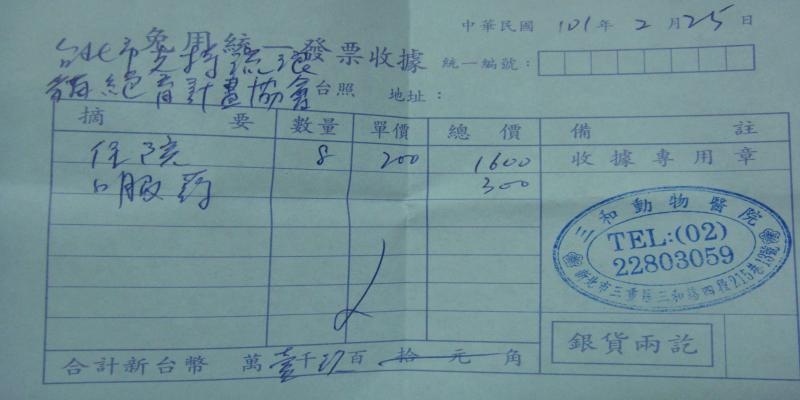 中華民國 101年 2月25日
免用統一發票收據
統一編號:
台北市支持流浪
貓絕育計畫協會台照 地址:
摘要 數量 單價 總價 備註
住院 8 200 1600 收據專用章
口服药 300
三和動物醫院
TEL:(02)
22803059
新北市三重區三和路四段215巷19號
合計新台幣 萬壹千玖百拾元角
銀貨兩訖